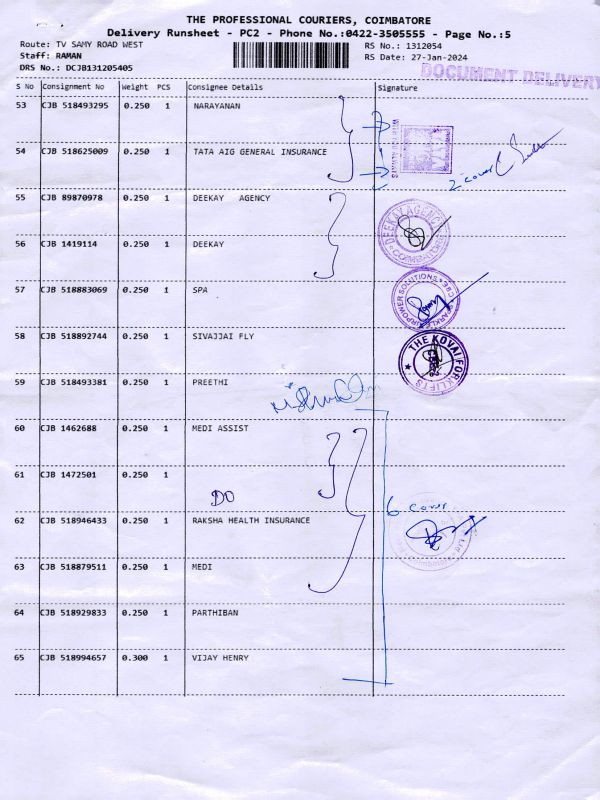 THE PROFESSIONAL COURIERS, COIMBATORE
Delivery Runsheet - PC2 - Phone No.:0422-3505555 - Page No.:5
Route: TV SAMY ROAD WEST RS No.: 1312054
Staff: RAMAN RS Date: 27-Jan-2024
DRS No.: DCJB131205405
DOCUMENT DELIVERY
S No Consignment No Weight PCS Consignee Details Signature
53 CJB 518493295 0.250 1 NARAYANAN
54 CJB 518625009 0.250 1 TATA AIG GENERAL INSURANCE
2 cover
55 CJB 89870978 0.250 1 DEEKAY AGENCY
DEEKAY AGENCY
COIMBATORE
56 CJB 1419114 0.250 1 DEEKAY
57 CJB 518883069 0.250 1 SPA
58 CJB 518892744 0.250 1 SIVAJJAI FLY
THE KOVAI FORKLIFTS
59 CJB 518493381 0.250 1 PREETHI
60 CJB 1462688 0.250 1 MEDI ASSIST
61 CJB 1472501 0.250 1
DO
6 cover
62 CJB 518946433 0.250 1 RAKSHA HEALTH INSURANCE
63 CJB 518879511 0.250 1 MEDI
64 CJB 518929833 0.250 1 PARTHIBAN
65 CJB 518994657 0.300 1 VIJAY HENRY